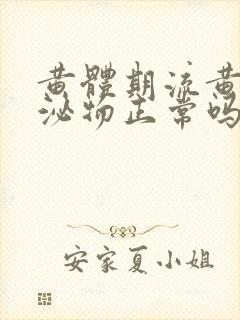 黄體期流黄
泌物正常吗
安家夏小姐